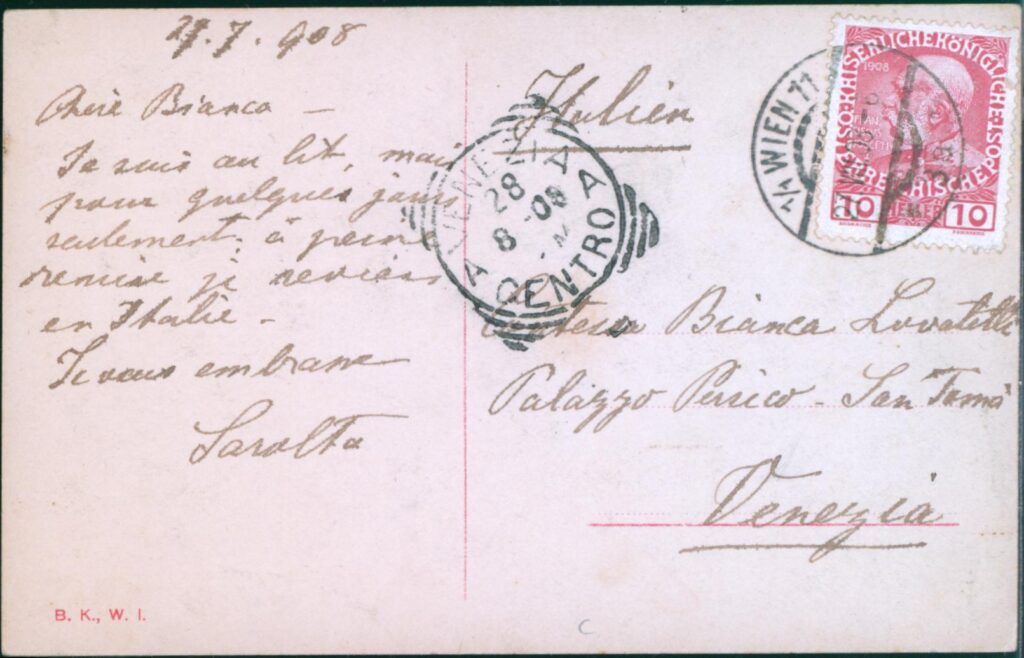 27.7.908
Chère Bianca —
Je suis au lit, mais
pour quelques jours
seulement; à peine
remise je reviens
en Italie —
Je vous embrasse
Sarolta
B. K., W. I.
Italien
VENEZIA
28
8 08
CENTRO
1/1 WIEN 11
K.K. ÖSTERREICHISCHE POST
1908
10 HELLER 10
Contessa Bianca Lovatelli
Palazzo Persico - San Tomà
Venezia
C